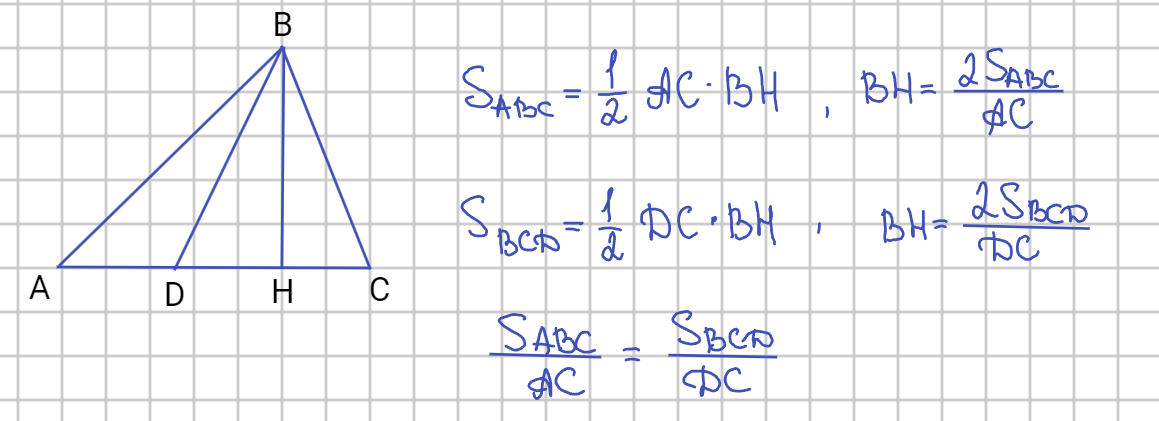 B
A D H C
S_ABC = 1/2 AC · BH , BH = 2S_ABC/AC
S_BCD = 1/2 DC · BH , BH = 2S_BCD/DC
S_ABC/AC = S_BCD/DC